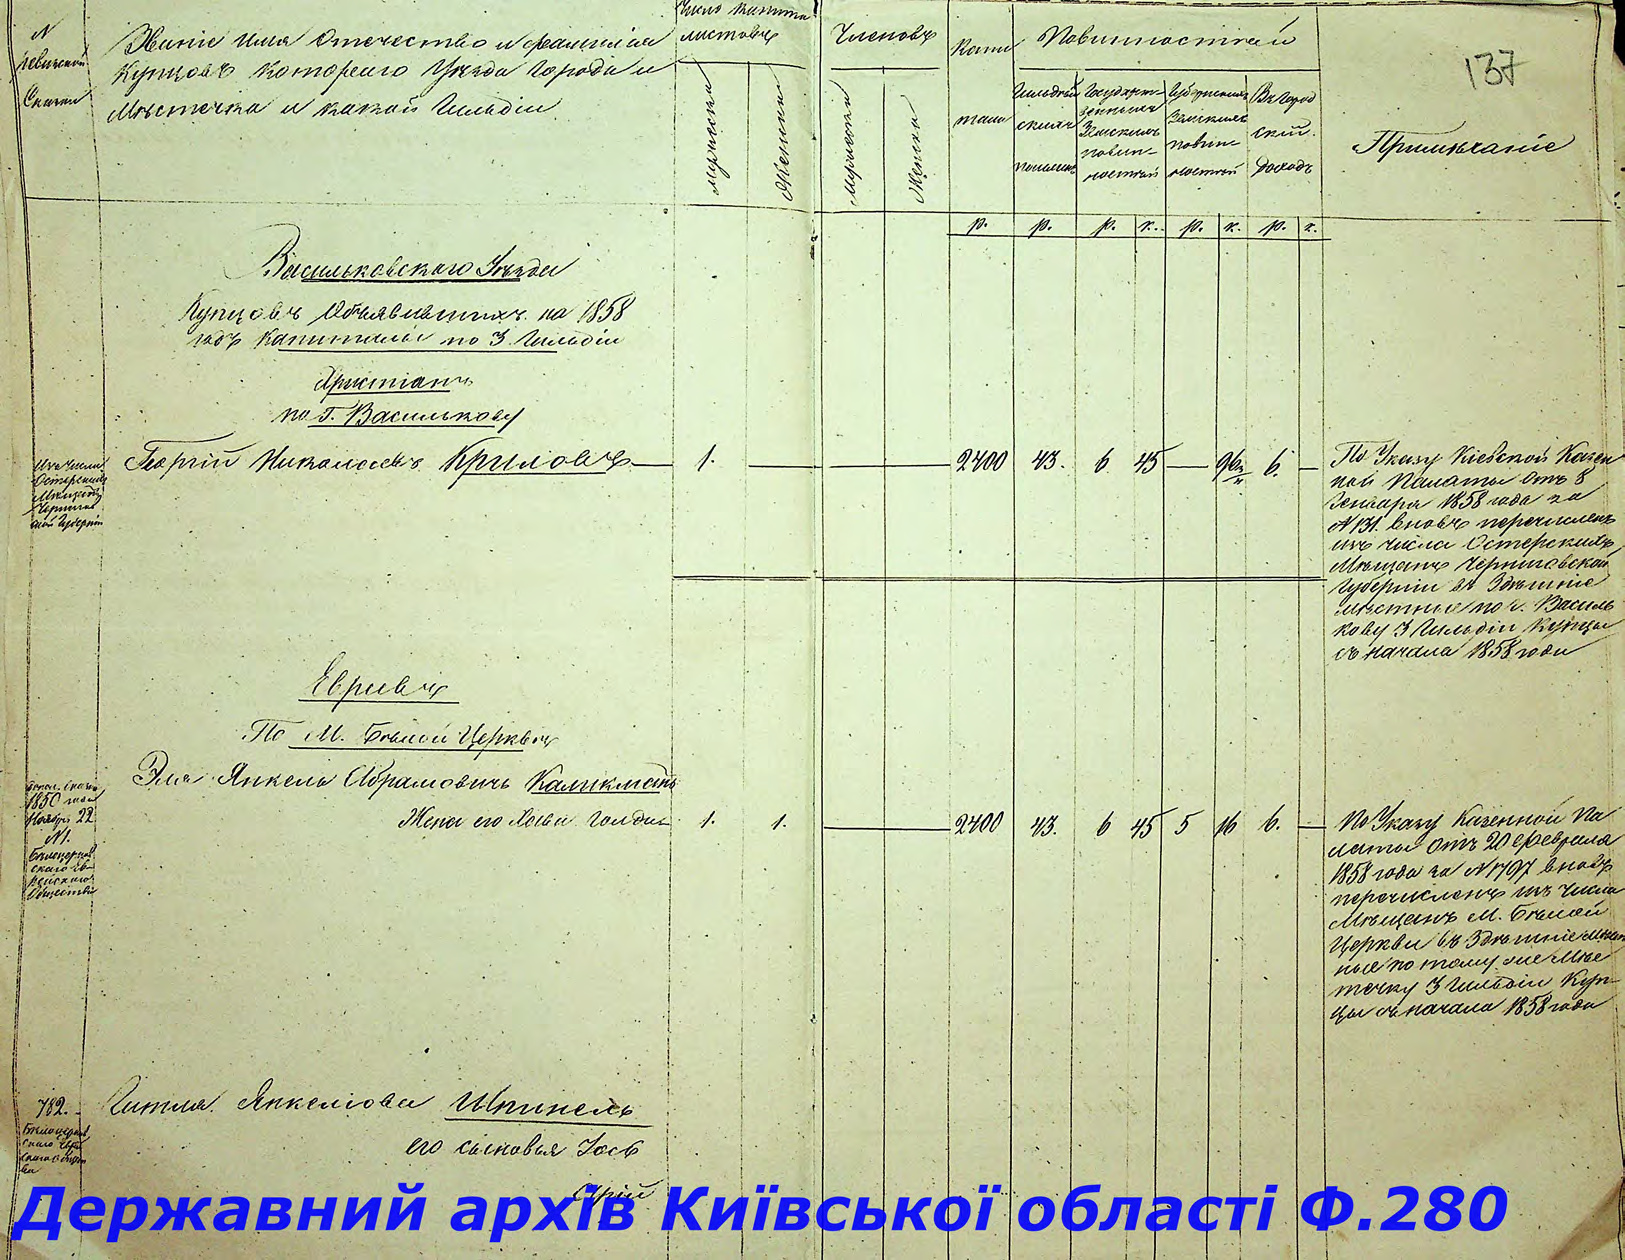 №
ревизской
Сказки
Званіе имя Отечество и фамилія
Купцовъ котораго Уезда города и
Местечка и какой Гильдіи
Число капита
листовъ
Мужеска
Женска
Членовъ
Мужеска
Женска
Капи
тала
Повинностей
Гильдей
скихъ
пошлинъ
Государст-
венныхъ
Земскихъ
повин-
ностей
Губернскихъ
Земскихъ
повин
ностей
Въ город
скій
доходъ
137
Примѣчаніе
р. р. р. к. р. к. р. к.
Васильковскаго Уѣзда
Купцовъ Объявившихъ на 1858
годъ Капиталы по 3 Гильдіи
Христіанъ
по Г. Василькову
Изъ числа
Остерскихъ
Мѣщанъ
Чернигов
ской Губерніи
Георгій Николаевъ Крыловъ 1. 2400 43. 6 45 96 6.
По Указу Кіевской Казен
ной Палаты Отъ 8
Генваря 1858 года за
№ 131. вновь перечисленъ
изъ числа Остерскихъ
Мѣщанъ Черниговской
Губерніи въ Здешніе
местные по г. Василь
кову 3 Гильдіи Купцы
съ начала 1858 года
Евреевъ
По М. Белой Церквѣ
1850 года
Ноября 22
№1.
Белоцерков
скаго Ев-
рейскаго
Общества
Эля Янкель Абрамовичъ Каликманъ
Жена его Хова Голда 1. 1. 2400 43. 6 45 5 16 6.
По Указу Казенной Па
латы отъ 20 Февраля
1858 года за № 1797 вновь
перечисленъ изъ числа
Мѣщанъ М. Белой
Церкви въ Здешніе Мѣст
ные по тому же Мѣс
течку 3 Гильдіи Куп-
цы съ начала 1858 года
782.
Гитля Янкеліова Шпинель
его сыновья Іось
Арій
Державний архів Київської області Ф.280